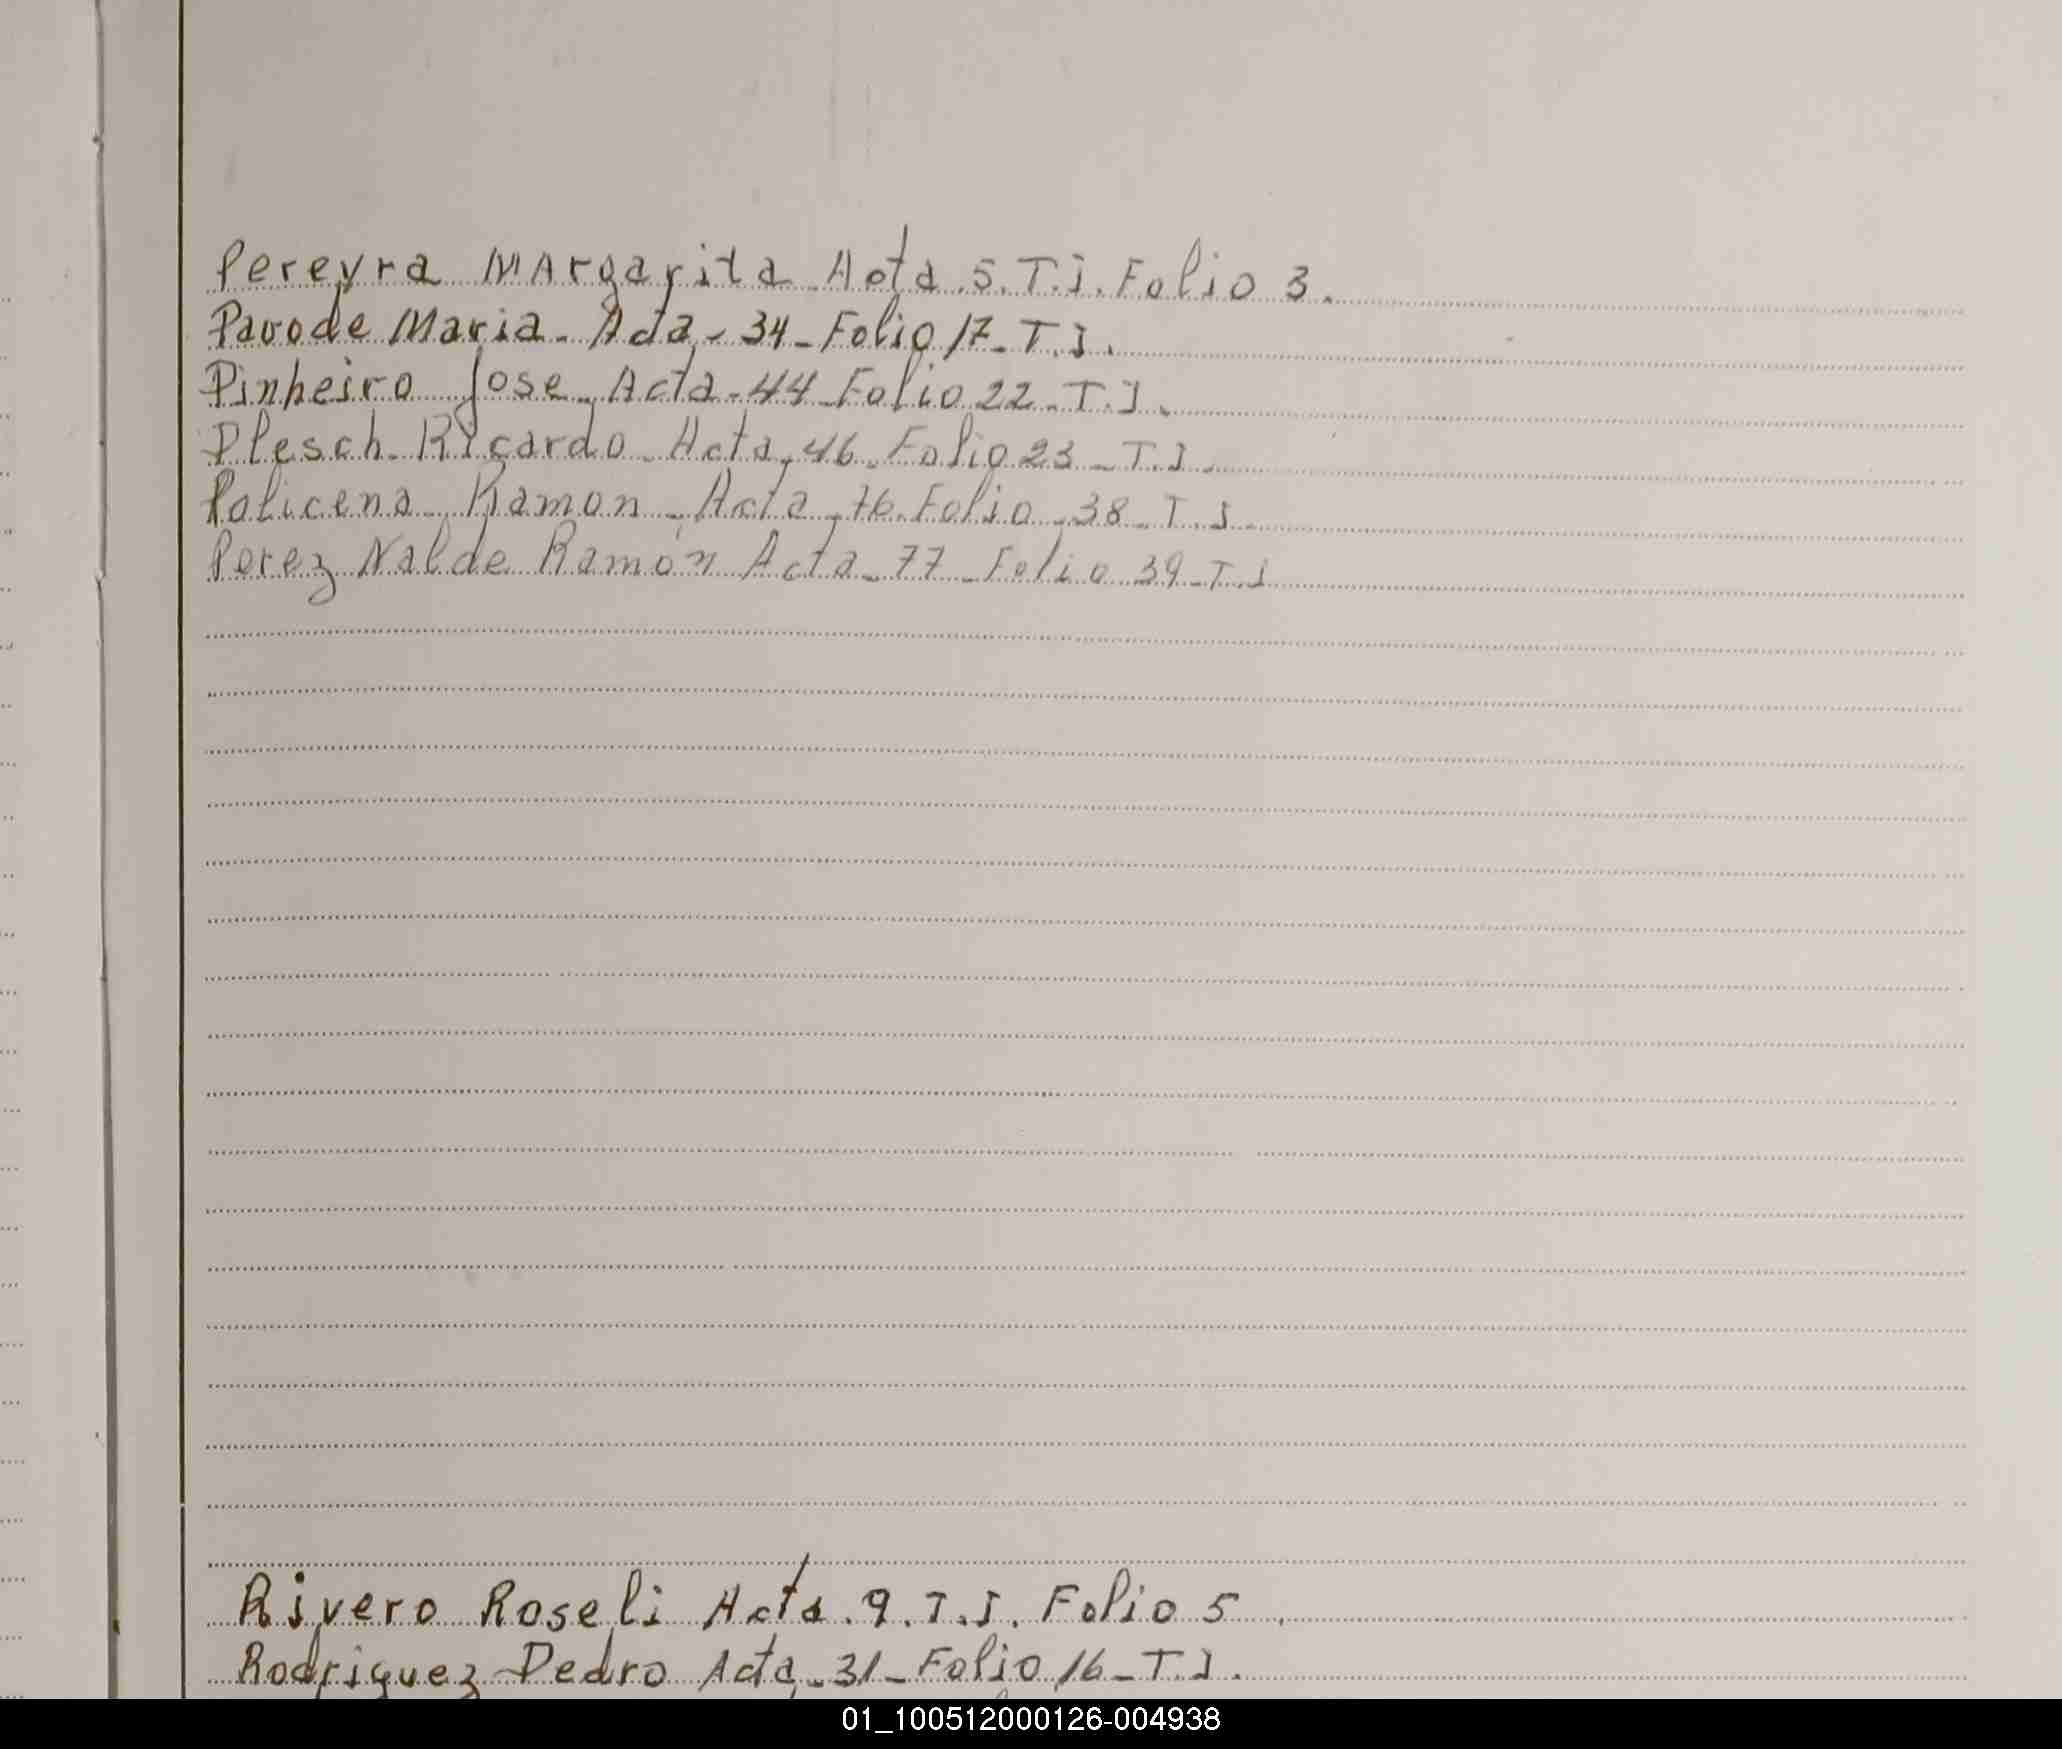 Pereyra Margarita Acta 5. T.I. Folio 3.
Pavode Maria - Acta - 34 - Folio 17 - T.I.
Pinheiro Jose - Acta - 44 - Folio 22 - T.I.
Plesch - Ricardo - Acta - 46 - Folio 23 - T.I.
Policena Ramon - Acta - 76 - Folio 38 - T.I.
Perez Nalde Ramón Acta - 77 - Folio 39 - T.I
Rivero Roseli Acta . 9 . T.I. Folio 5 .
Rodriguez Pedro Acta - 31 - Folio 16 - T.I.
01_100512000126-004938